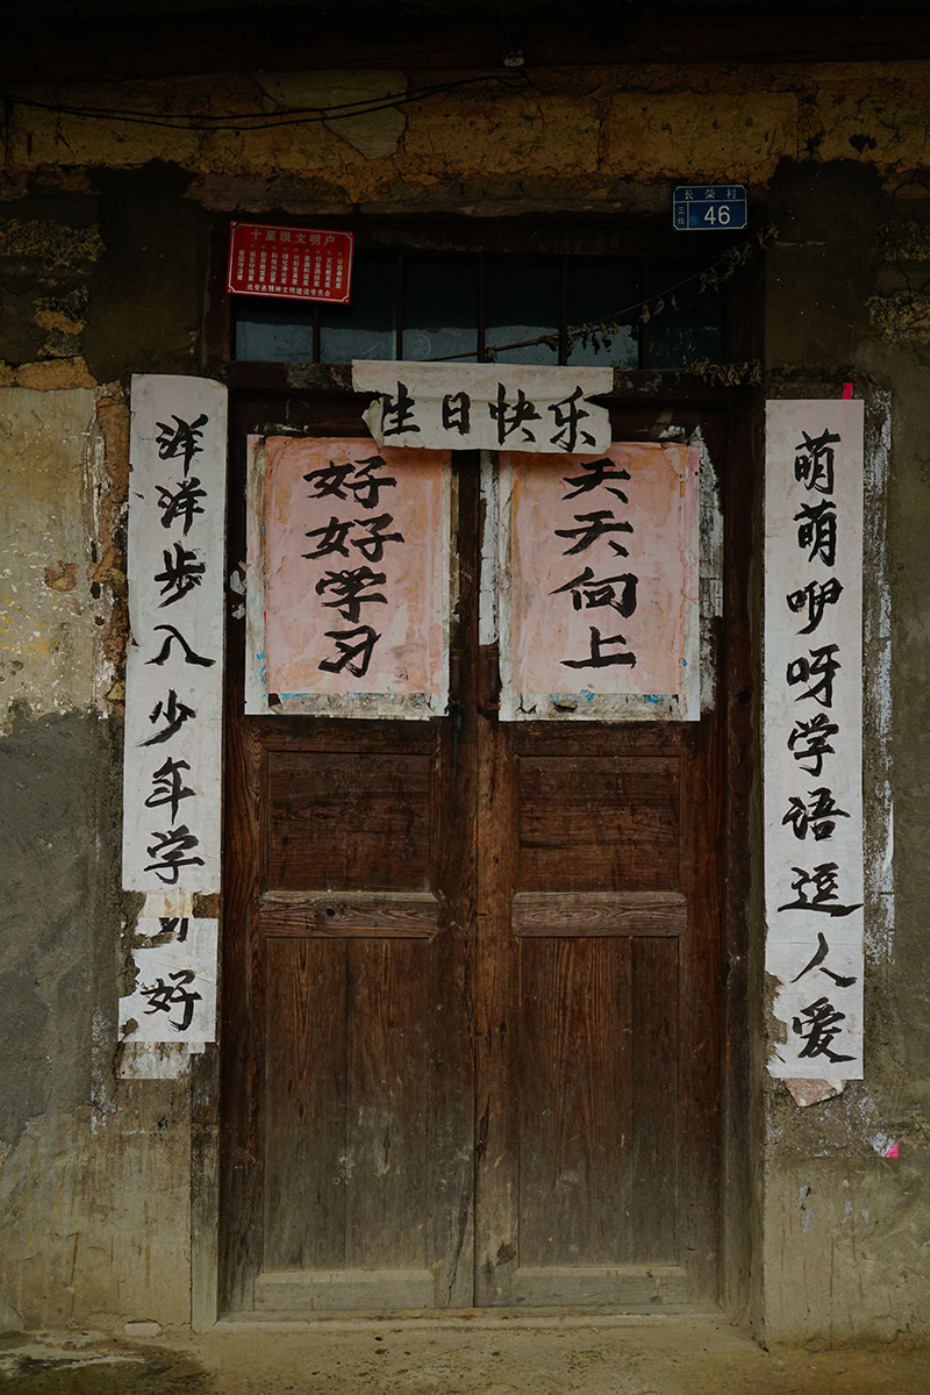 十星级文明户
长荣村
46
生日快乐
萌萌咿呀学语逗人爱
洋洋步入少年学
好
好好学习
天天向上